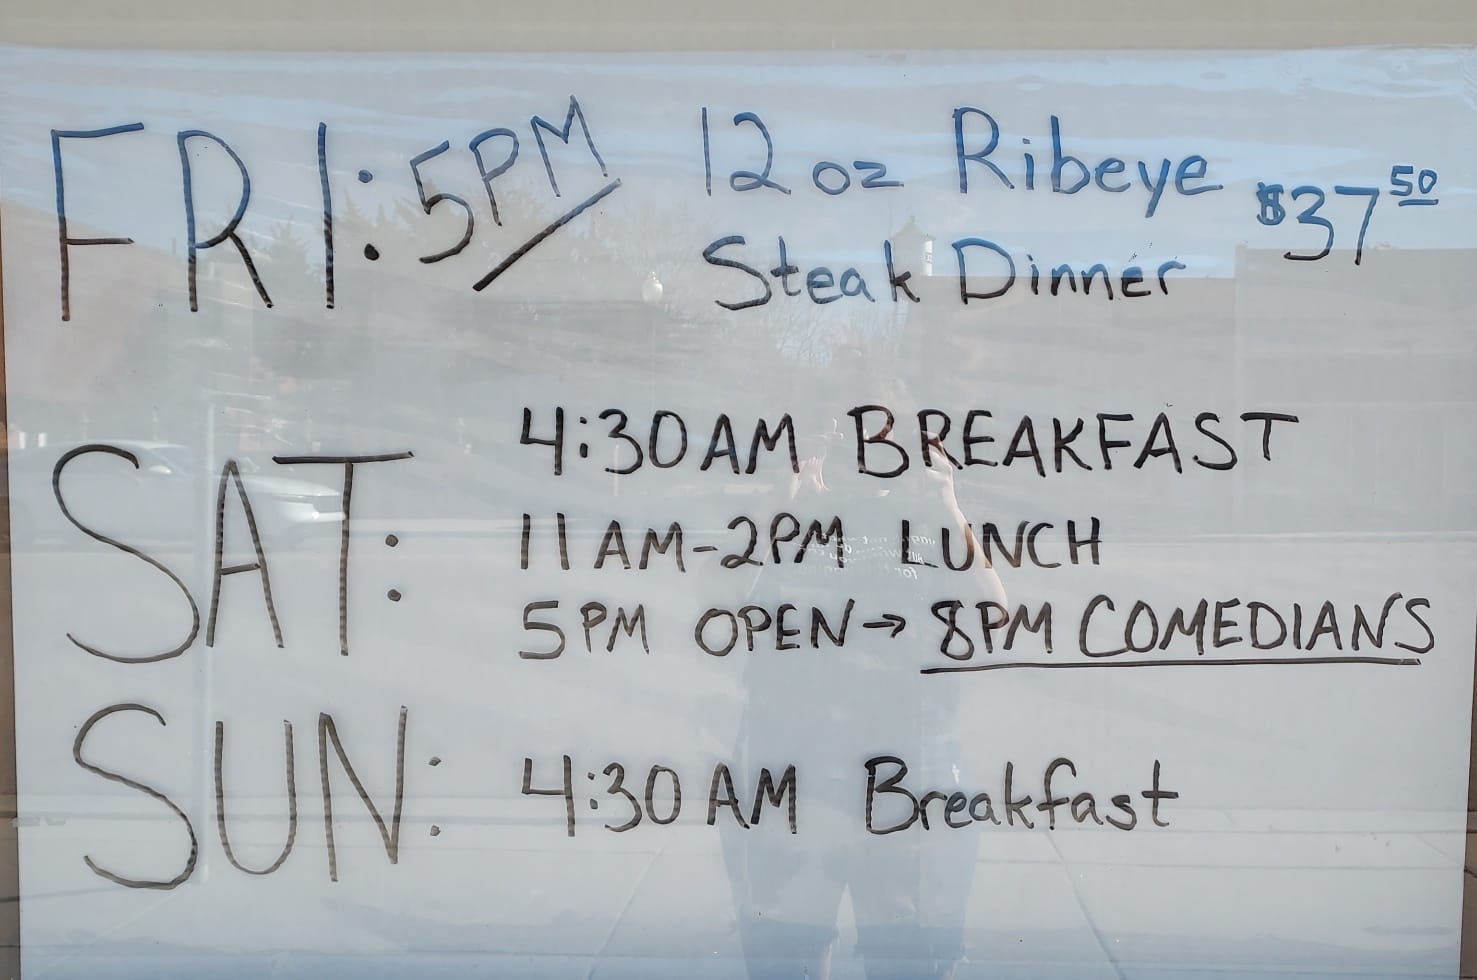 FRI: 5PM 12 oz Ribeye $37 50
Steak Dinner
4:30AM BREAKFAST
SAT: 11AM-2PM LUNCH
5PM OPEN→ 8PM COMEDIANS
SUN: 4:30AM Breakfast